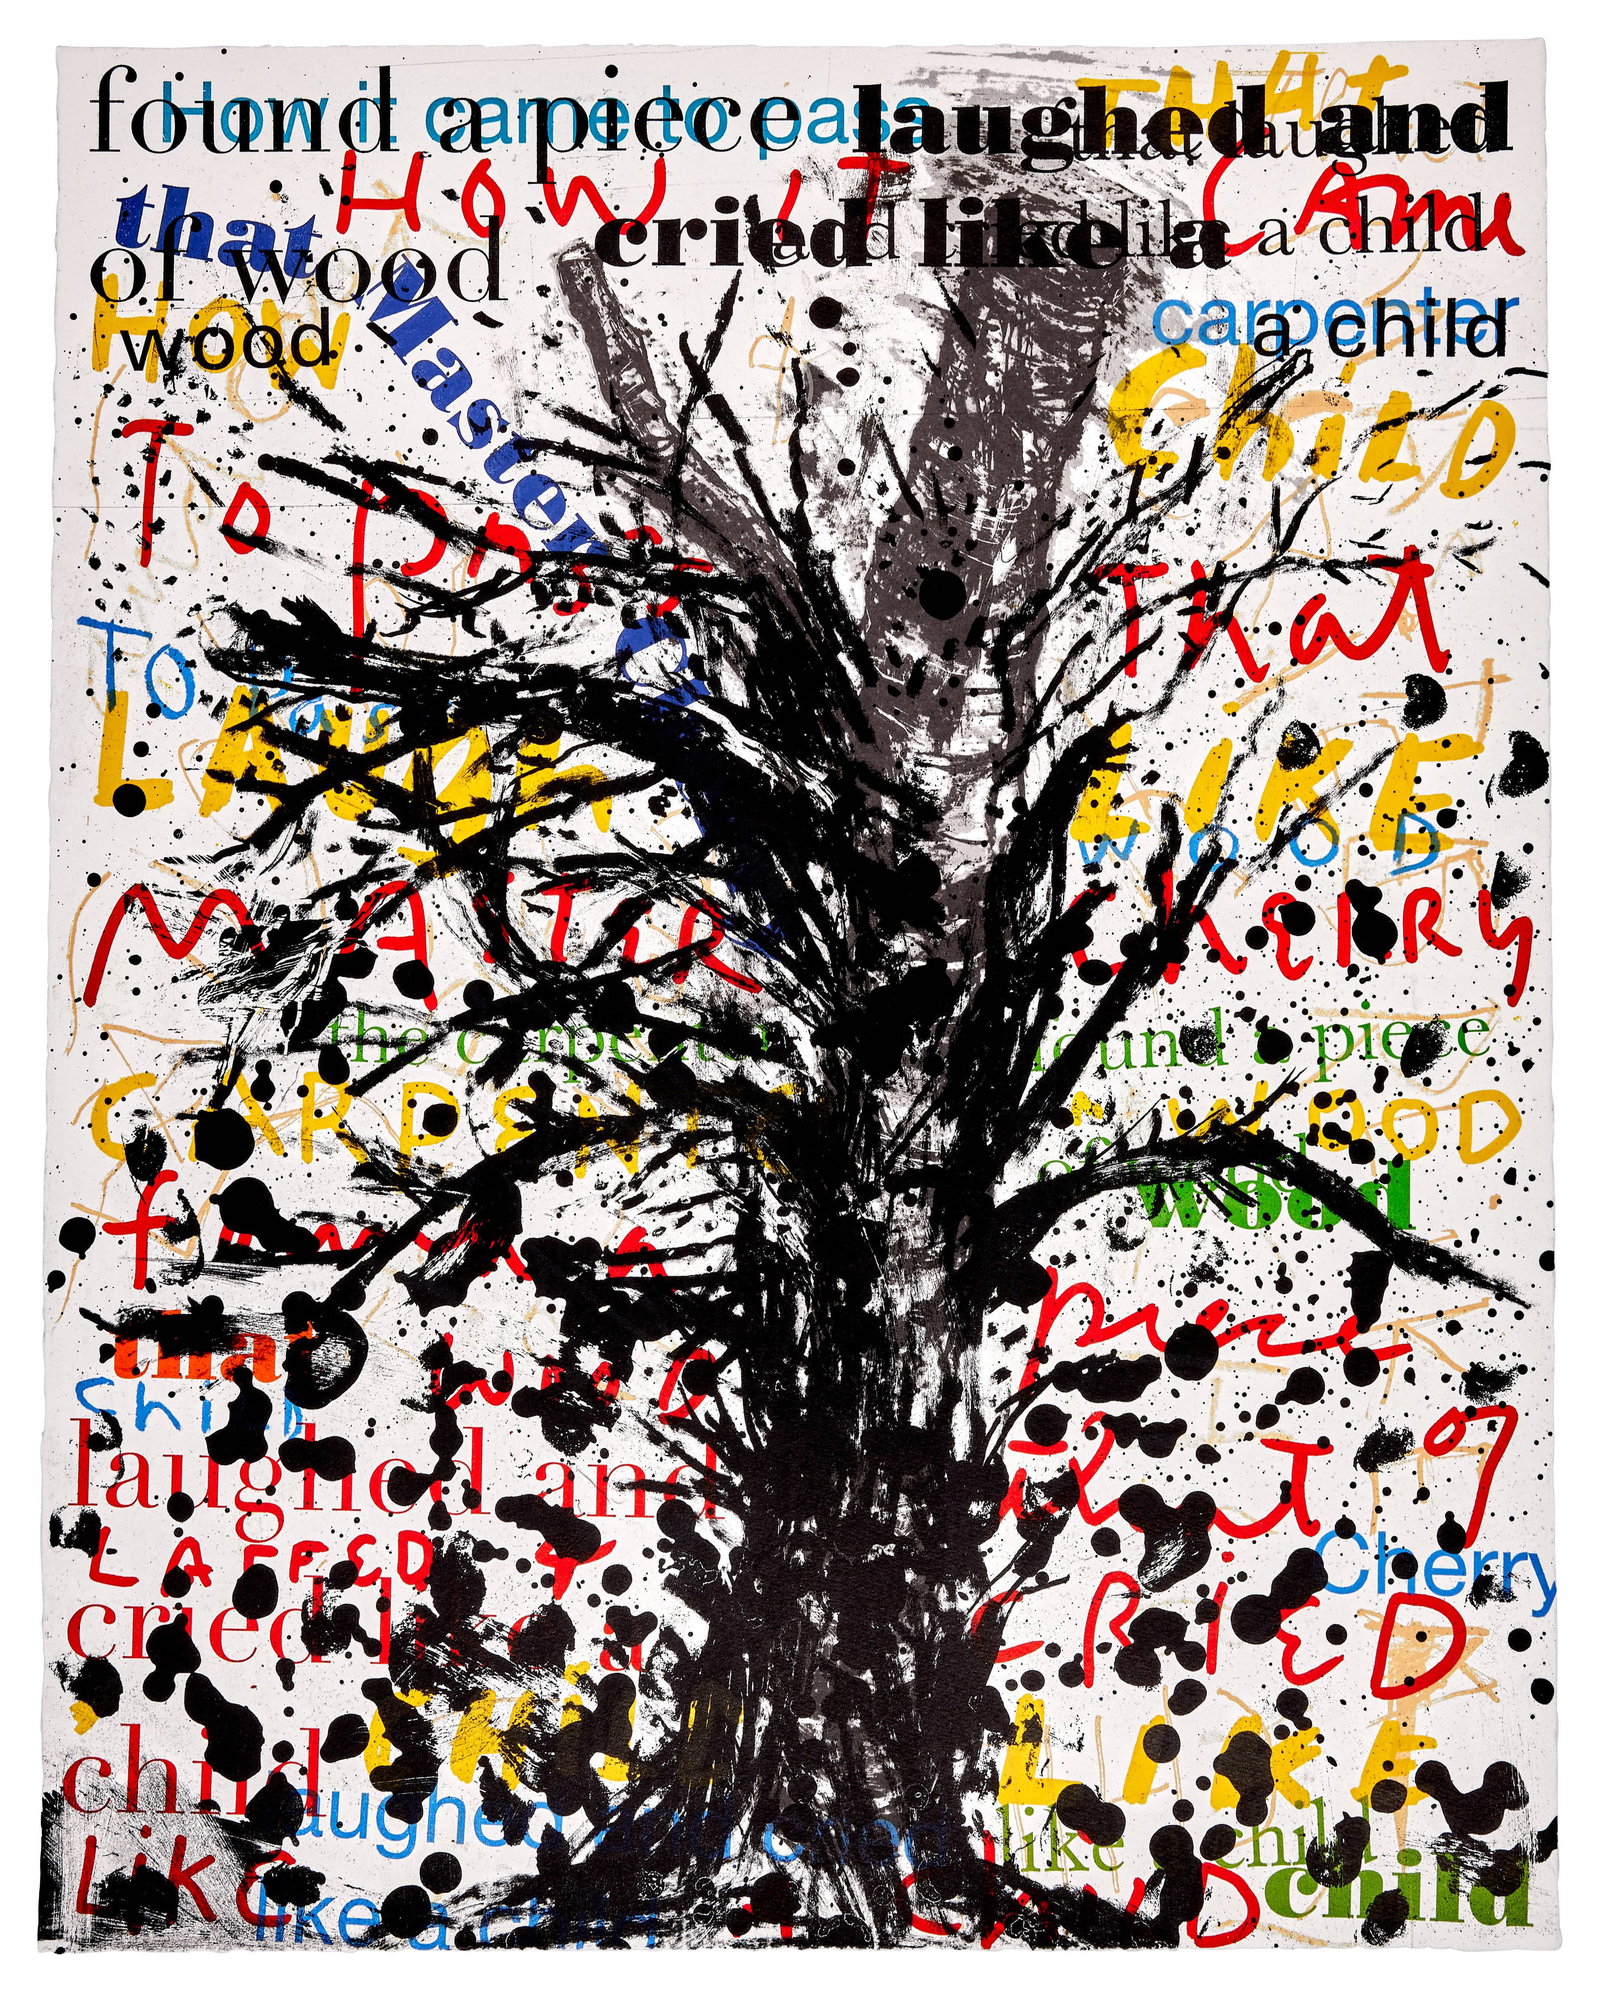 found a piece laughed and
How it came to pass
THAT
that laughed
HOW IT CAME
that
cried like a
and cried like a child
of wood
Master
carpenter
HOW
wood
a child
CHILD
To pass
That
To pass
LIKE
WOOD
CHERRY
the carpenter
found a piece
CARPENTE
WOOD
of wood
wood
piece
that
Child
that of
laughed and
LAFFED &
Cherry
cried like a
CRIED
LIKE
child
laughed and cried
like a child
LIKE
child
like a child